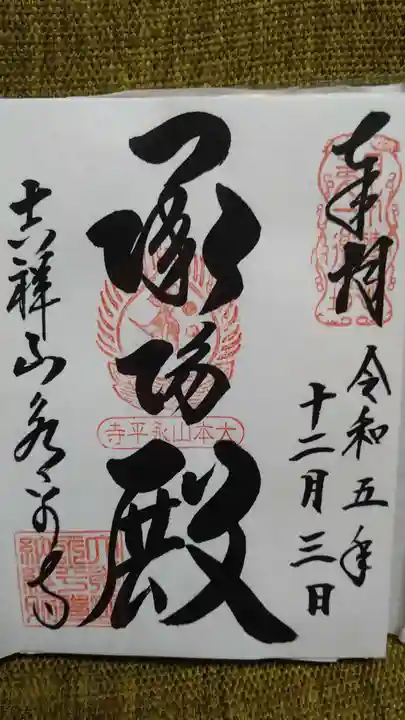 奉拝
令和五年
十二月三日
承陽殿
大本山永平寺
吉祥山永平寺